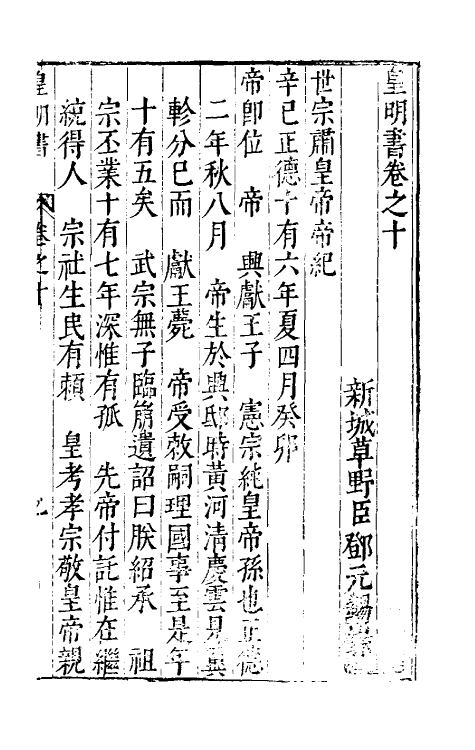 皇明書卷之十
新城草野臣鄧元錫
世宗肅皇帝帝紀
辛巳正德十有六年夏四月癸卯
帝卽位 帝 興獻王子 憲宗純皇帝孫也正德
二年秋八月 帝生於興邸時黃河清慶雲見翼
軫分已而 獻王薨 帝受敕嗣理國事至是年
十有五矣 武宗無子臨崩遺詔曰朕紹承 祖
宗丕業十有七年深惟有孤 先帝付託惟在繼
統得人 宗社生民有賴 皇考孝宗敬皇帝親
皇明書 卷之十